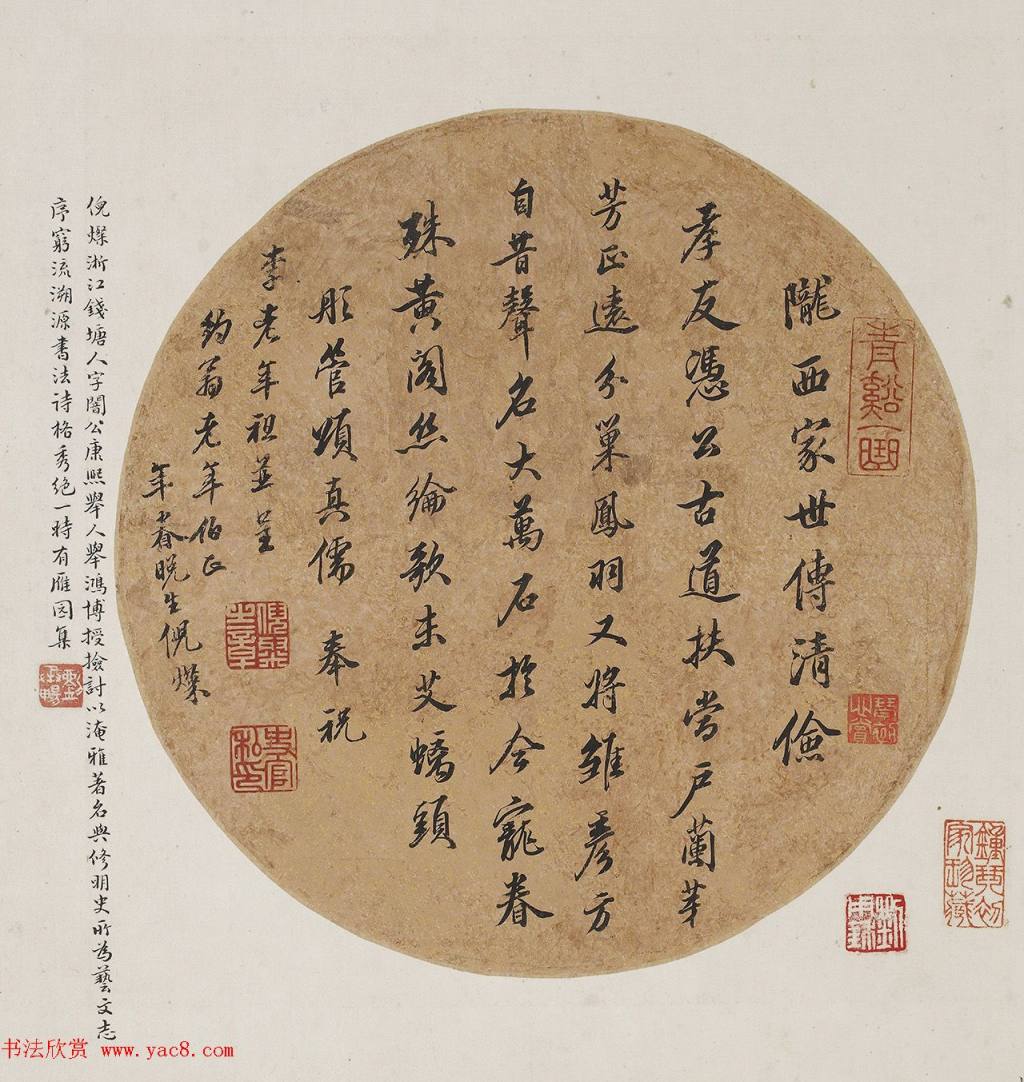 隴西家世傳清儉
孝友憑公古道扶當戶蘭芽
芳正遠分巢鳳羽又將雛彥方
自昔聲名大萬石於今寵眷
殊黃閣絲綸歌未艾螭頭
彤管頌真儒 奉祝
李老年祖並呈
約翁老年伯正
年眷晚生倪燦
青谿一曲
倪燦之章
史官私印
倪燦浙江錢塘人字闇公康熙舉人舉鴻博授撿討以淹雅著名與修明史所為藝文志
序窮流溯源書法詩格秀絕一時有雁园集
鍾琴初家珍藏
书法欣赏 www.yac8.com